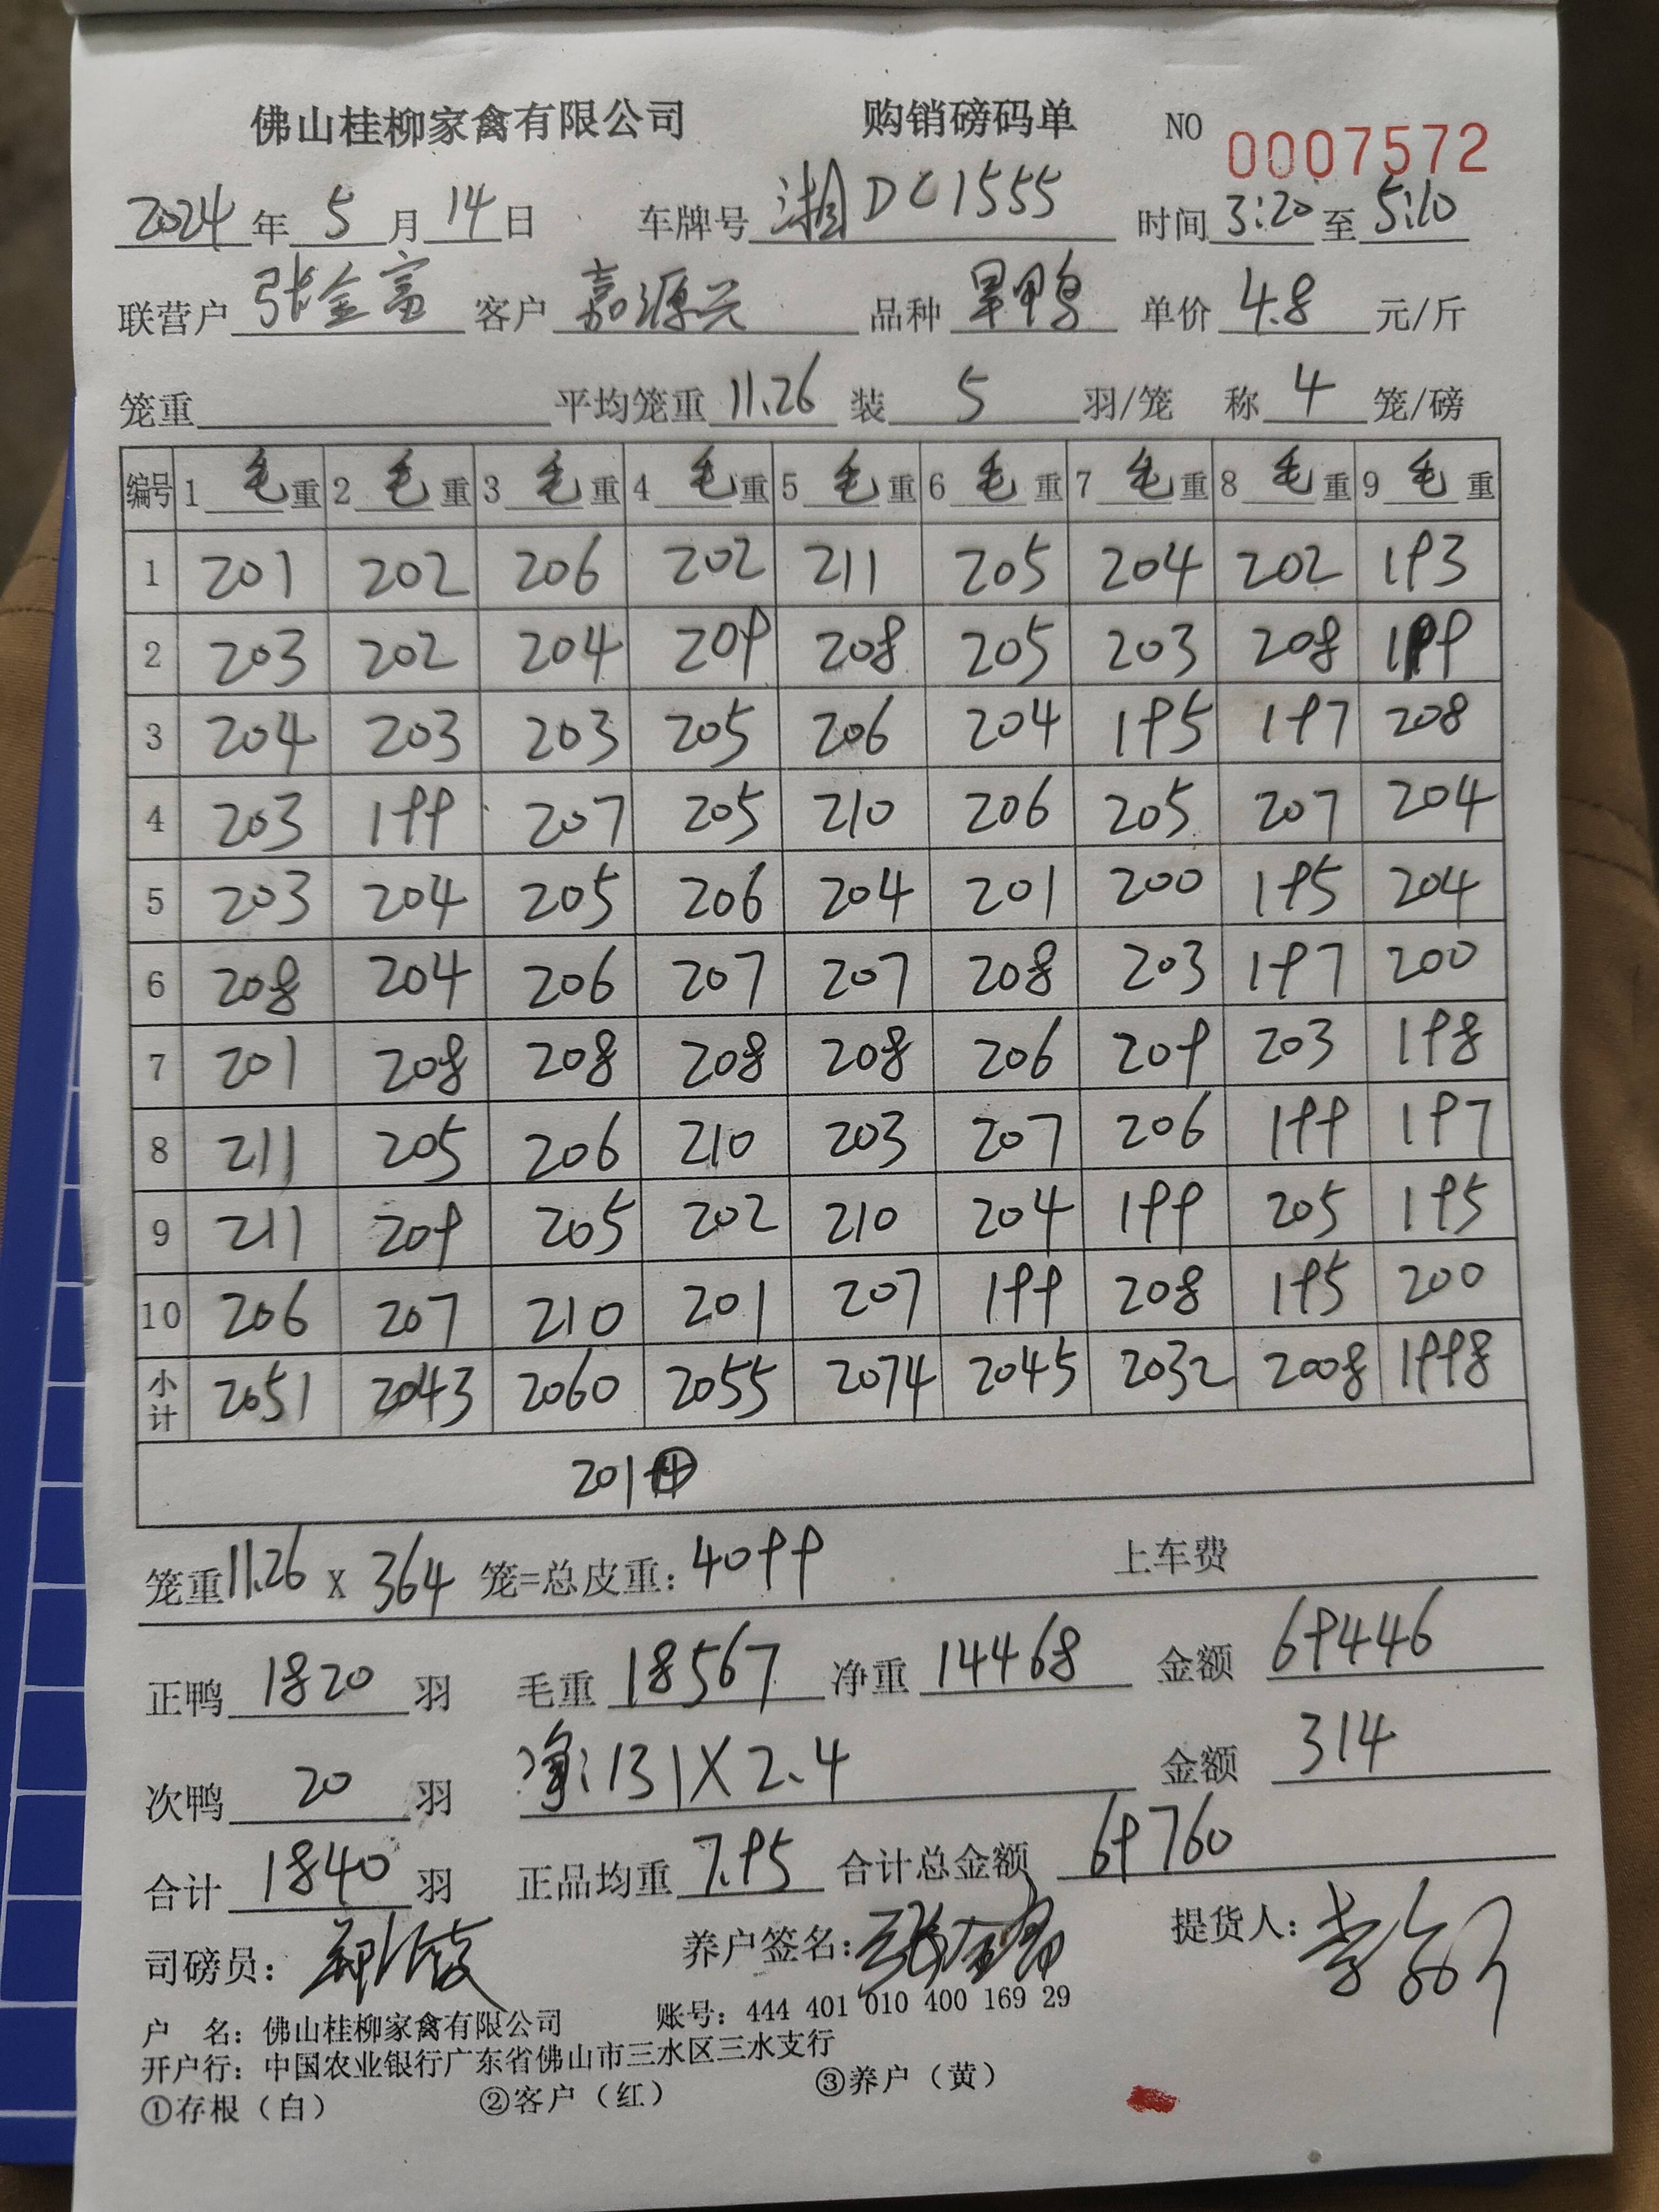 佛山桂柳家禽有限公司 购销磅码单 NO 0007572
2024年5月14日 车牌号 湘DC1555 时间 3:20 至 5:10
联营户 张金富 客户 嘉源兴 品种 旱鸭 单价 4.8 元/斤
笼重 平均笼重 11.26 装 5 羽/笼 称 4 笼/磅
编号 1 毛重 2 毛重 3 毛重 4 毛重 5 毛重 6 毛重 7 毛重 8 毛重 9 毛重
1 201 202 206 202 211 205 204 202 193
2 203 202 204 209 208 205 203 208 199
3 204 203 203 205 206 204 195 197 208
4 203 199 207 205 210 206 205 207 204
5 203 204 205 206 204 201 200 195 204
6 208 204 206 207 207 208 203 197 200
7 201 208 208 208 208 206 209 203 198
8 211 205 206 210 203 207 206 199 197
9 211 209 205 202 210 204 199 205 195
10 206 207 210 201 207 199 208 195 200
小计 2051 2043 2060 2055 2074 2045 2032 2008 1998
201 ④
笼重 11.26 X 364 笼=总皮重: 4099 上车费
正鸭 1820 羽 毛重 18567 净重 14468 金额 69446
次鸭 20 羽 净: 131X2.4 金额 314
合计 1840 羽 正品均重 7.95 合计总金额 69760
司磅员: 养户签名: 张金富 提货人:
户 名: 佛山桂柳家禽有限公司 账号: 444 401 010 400 169 29
开户行: 中国农业银行广东省佛山市三水区三水支行
①存根(白) ②客户(红) ③养户(黄)